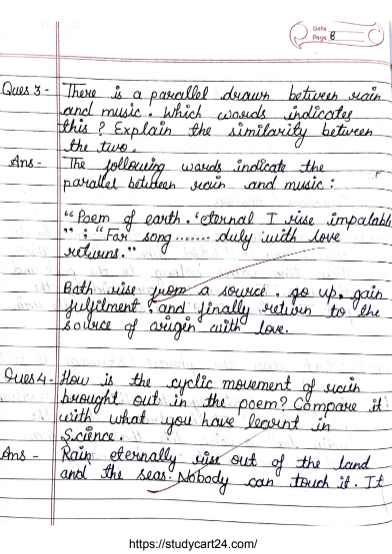 Date
Page 8
Ques 3 - There is a parallel drawn between rain
and music. Which words indicates
this? Explain the similarity between
the two.
Ans - The following words indicate the
parallel between rain and music:
"Poem of earth. 'eternal I rise impalabl
" ; "For song ....... duly with love
returns."
Both rise from a source, go up, gain
fulfilment, and finally return to the
source of origin with love.
Ques 4 - How is the cyclic movement of rain
brought out in the poem? Compare it
with what you have learnt in
Science.
Ans - Rain eternally rise out of the land
and the seas. Nobody can touch it. It
https://studycart24.com/